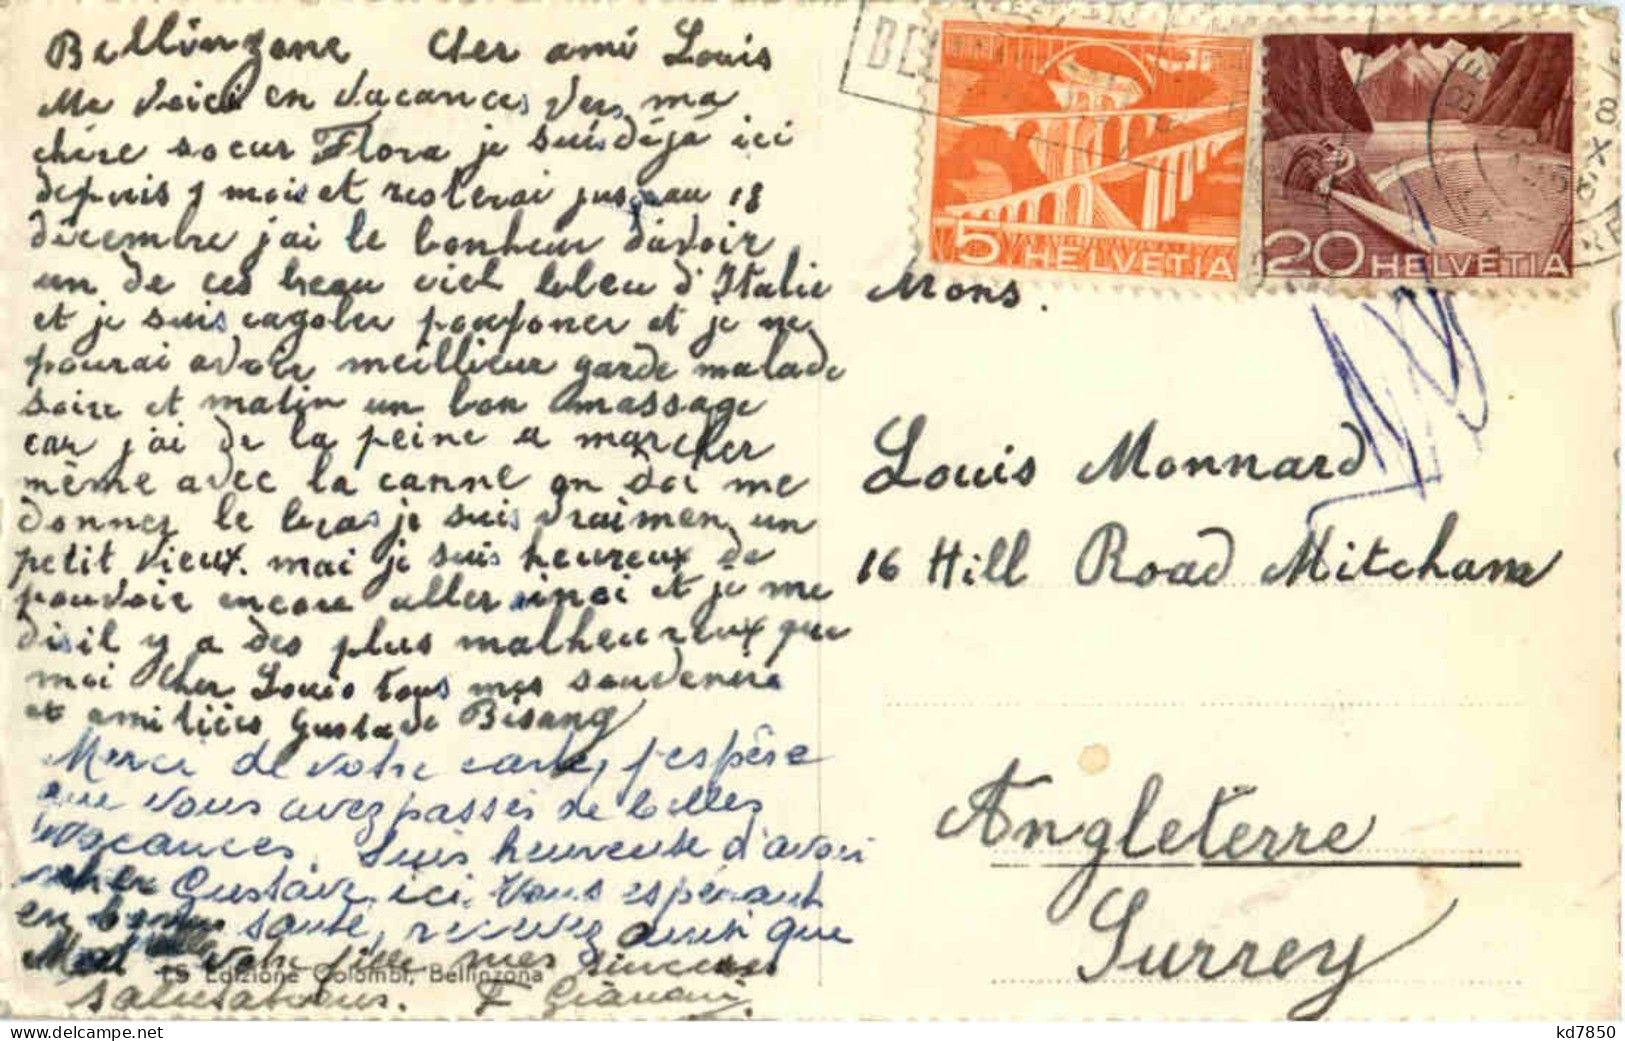 Bellinzone Cher ami Louis
Me Voici en Vacances Vers ma
chère soeur Flora je suis déjà ici
depuis 1 mois et resterai jusqau 18
décembre j'ai le bonheur d'avoir
un de ces beau ciel bleu d'Italie
et je suis cagoler pouponer et je ne
pourai avoir meillieur garde malade
soire et matin un bon massage
car j'ai de la peine a marcher
même avec la canne on doi me
donner le bras je suis vraimen un
petit vieux. mai je suis heureux de
pouvoir encore aller insi et je me
dis il y a des plus malheureux que
moi Cher Louis tous mes souvenirs
et amitiés Gustave Bisang
Merci de votre carte, j'espère
que vous avez passés de belles
vacances. Suis heureuse d'avoir
cher Gustave, ici. Vous espérant
en bonne santé, recevez ainsi que
votre fille mes sincères
salutations. F Gianani
15 Edizione Colombi, Bellinzona
5 HELVETIA
20 HELVETIA
Mons.
Louis Monnard
16 Hill Road Mitcham
Angleterre
Surrey
kd7850